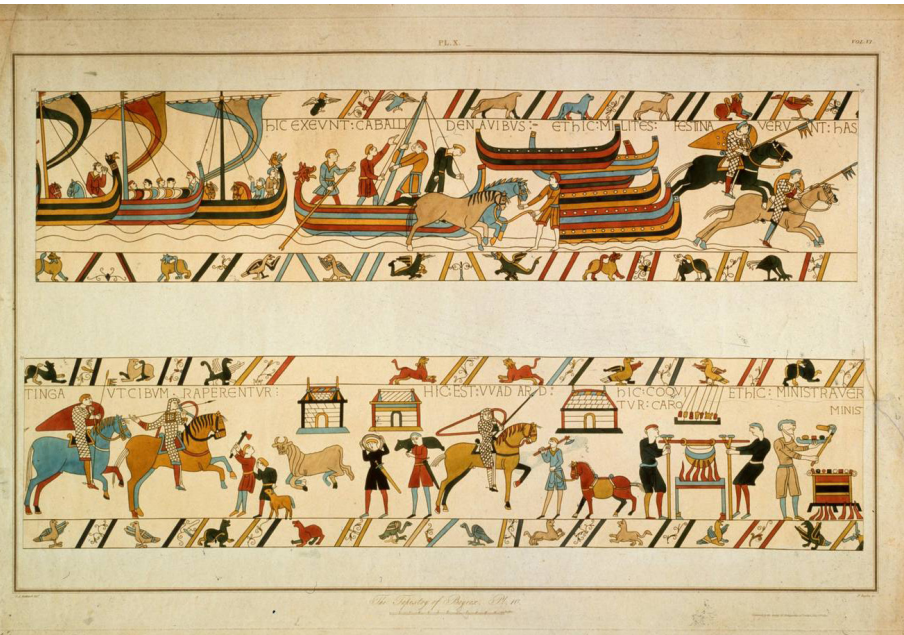 PL. X.
VOL. VI
HIC EXEVNT: CABALLI DE NAVIBVS:- ET HIC: MILITES: FESTINAVERVNT: HAS
TINGA VT CIBVM. RAPERENTVR: HIC EST: VVADARD: HIC: COQVI ET HIC: MINISTRAVER
TVR: CARO MINIS
The Tapestry of Bayeux. Pl. 10.